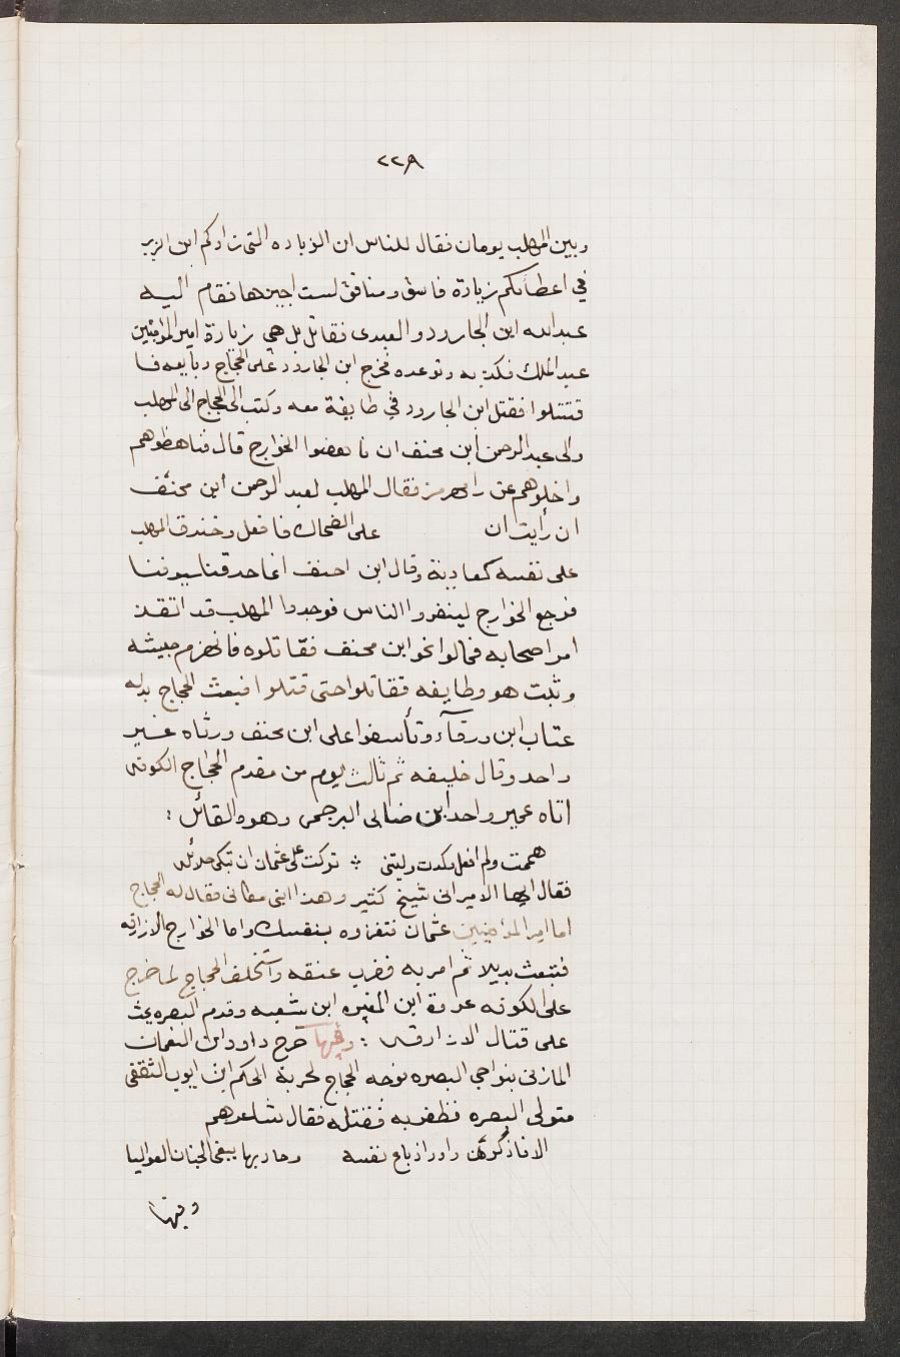 ٢٢٩
وبين المهلب يومان فقال للناس ان الزياده التى زادكم ابن الزبير
في اعطائكم زيادة فاسق ومنافق لست اجيزها فقام اليه
عبدالله ابن الجارود والعبدى فقال بل هي زيادة امير المؤمنين
عبد الملك فكذبه وتوعده فخرج ابن الجارود على الحجاج وبايعه فا
قتتلوا فقتل ابن الجارود في طايفة معه وكتب الى الحجاج الى المهلب
والى عبد الرحمن ابن مخنف ان ناهضوا الخوارج قال فناهظوهم
واخلوهم عن رامهرمز فقال المهلب لعبد الرحمن ابن مخنف
ان رأيت ان على الضحاك فافعل وخندق المهلب
على نفسه كعادته وقال ابن احنف انما خندقنا سيوفنا
فرجع الخوارج لينفروا الناس فوجدوا المهلب قد اتقن
امر اصحابه فمالوا نحو ابن مخنف فقاتلوه فانهزم جيشه
وثبت هو وطايفه فقاتلوا حتى قتلوا فبعث الحجاج بدله
عتاب ابن ورقآء وتأسفوا على ابن مخنف ورثاه غير
واحد وقال خليفه ثم ثالث يوم من مقدم الحجاج الكوفه
اتاه عمير واحد ابن ضابى البرجمى وهوه القائل :
هممت ولم افعل وكدت وليتنى ⁘ تركت على عثمان ان تبكى حلائله
فقال ايها الامير انى شيخ كبير وهذا ابنى مكانى فقال له الحجاج
اما امير المؤمنين عثمان فتغزوه بنفسك واما الخوارج الازارقه
فتبعث بديلا ثم امر به فضرب عنقه وآستخلف الحجاج لما خرج
على الكوفه عروة ابن المغيره ابن شعبه وقدم البصره يحث
على قتال الازارقه : وفيها خرج داود ابن النعمان
المازنى بنواحي البصره فوجه الحجاج لحربه الحكم ابن ايوب الثقفى
متولى البصره فظفر به فقتله فقال شاعرهم
الا فاذكرن داود اذ باع نفسه وجاد بها يبغى الجنان العواليا
وفيها